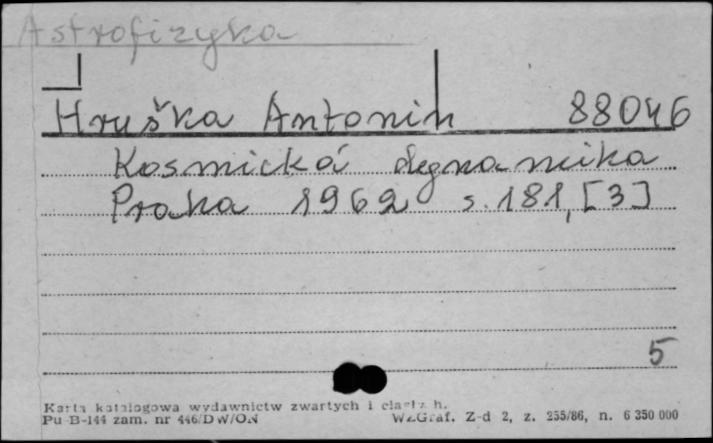 Astrofizyka
Hruška Antonin 88046
Kosmická dynamika
Praha 1962 s. 181, [3]
5
Karta katalogowa wydawnictw zwartych i h.
Pu-B-144 zam. nr 446/DW/ON WZGraf. Z-d 2, z. 255/86, n. 6 350 000